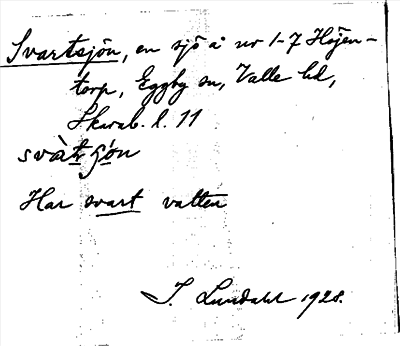 Svartsjön, en sjö å nr 1-7 Höjen-
torp, Eggby sn, Valle hd,
Skarab. l. 11
svàtʃön
Har svart vatten
I. Lundahl 1928.